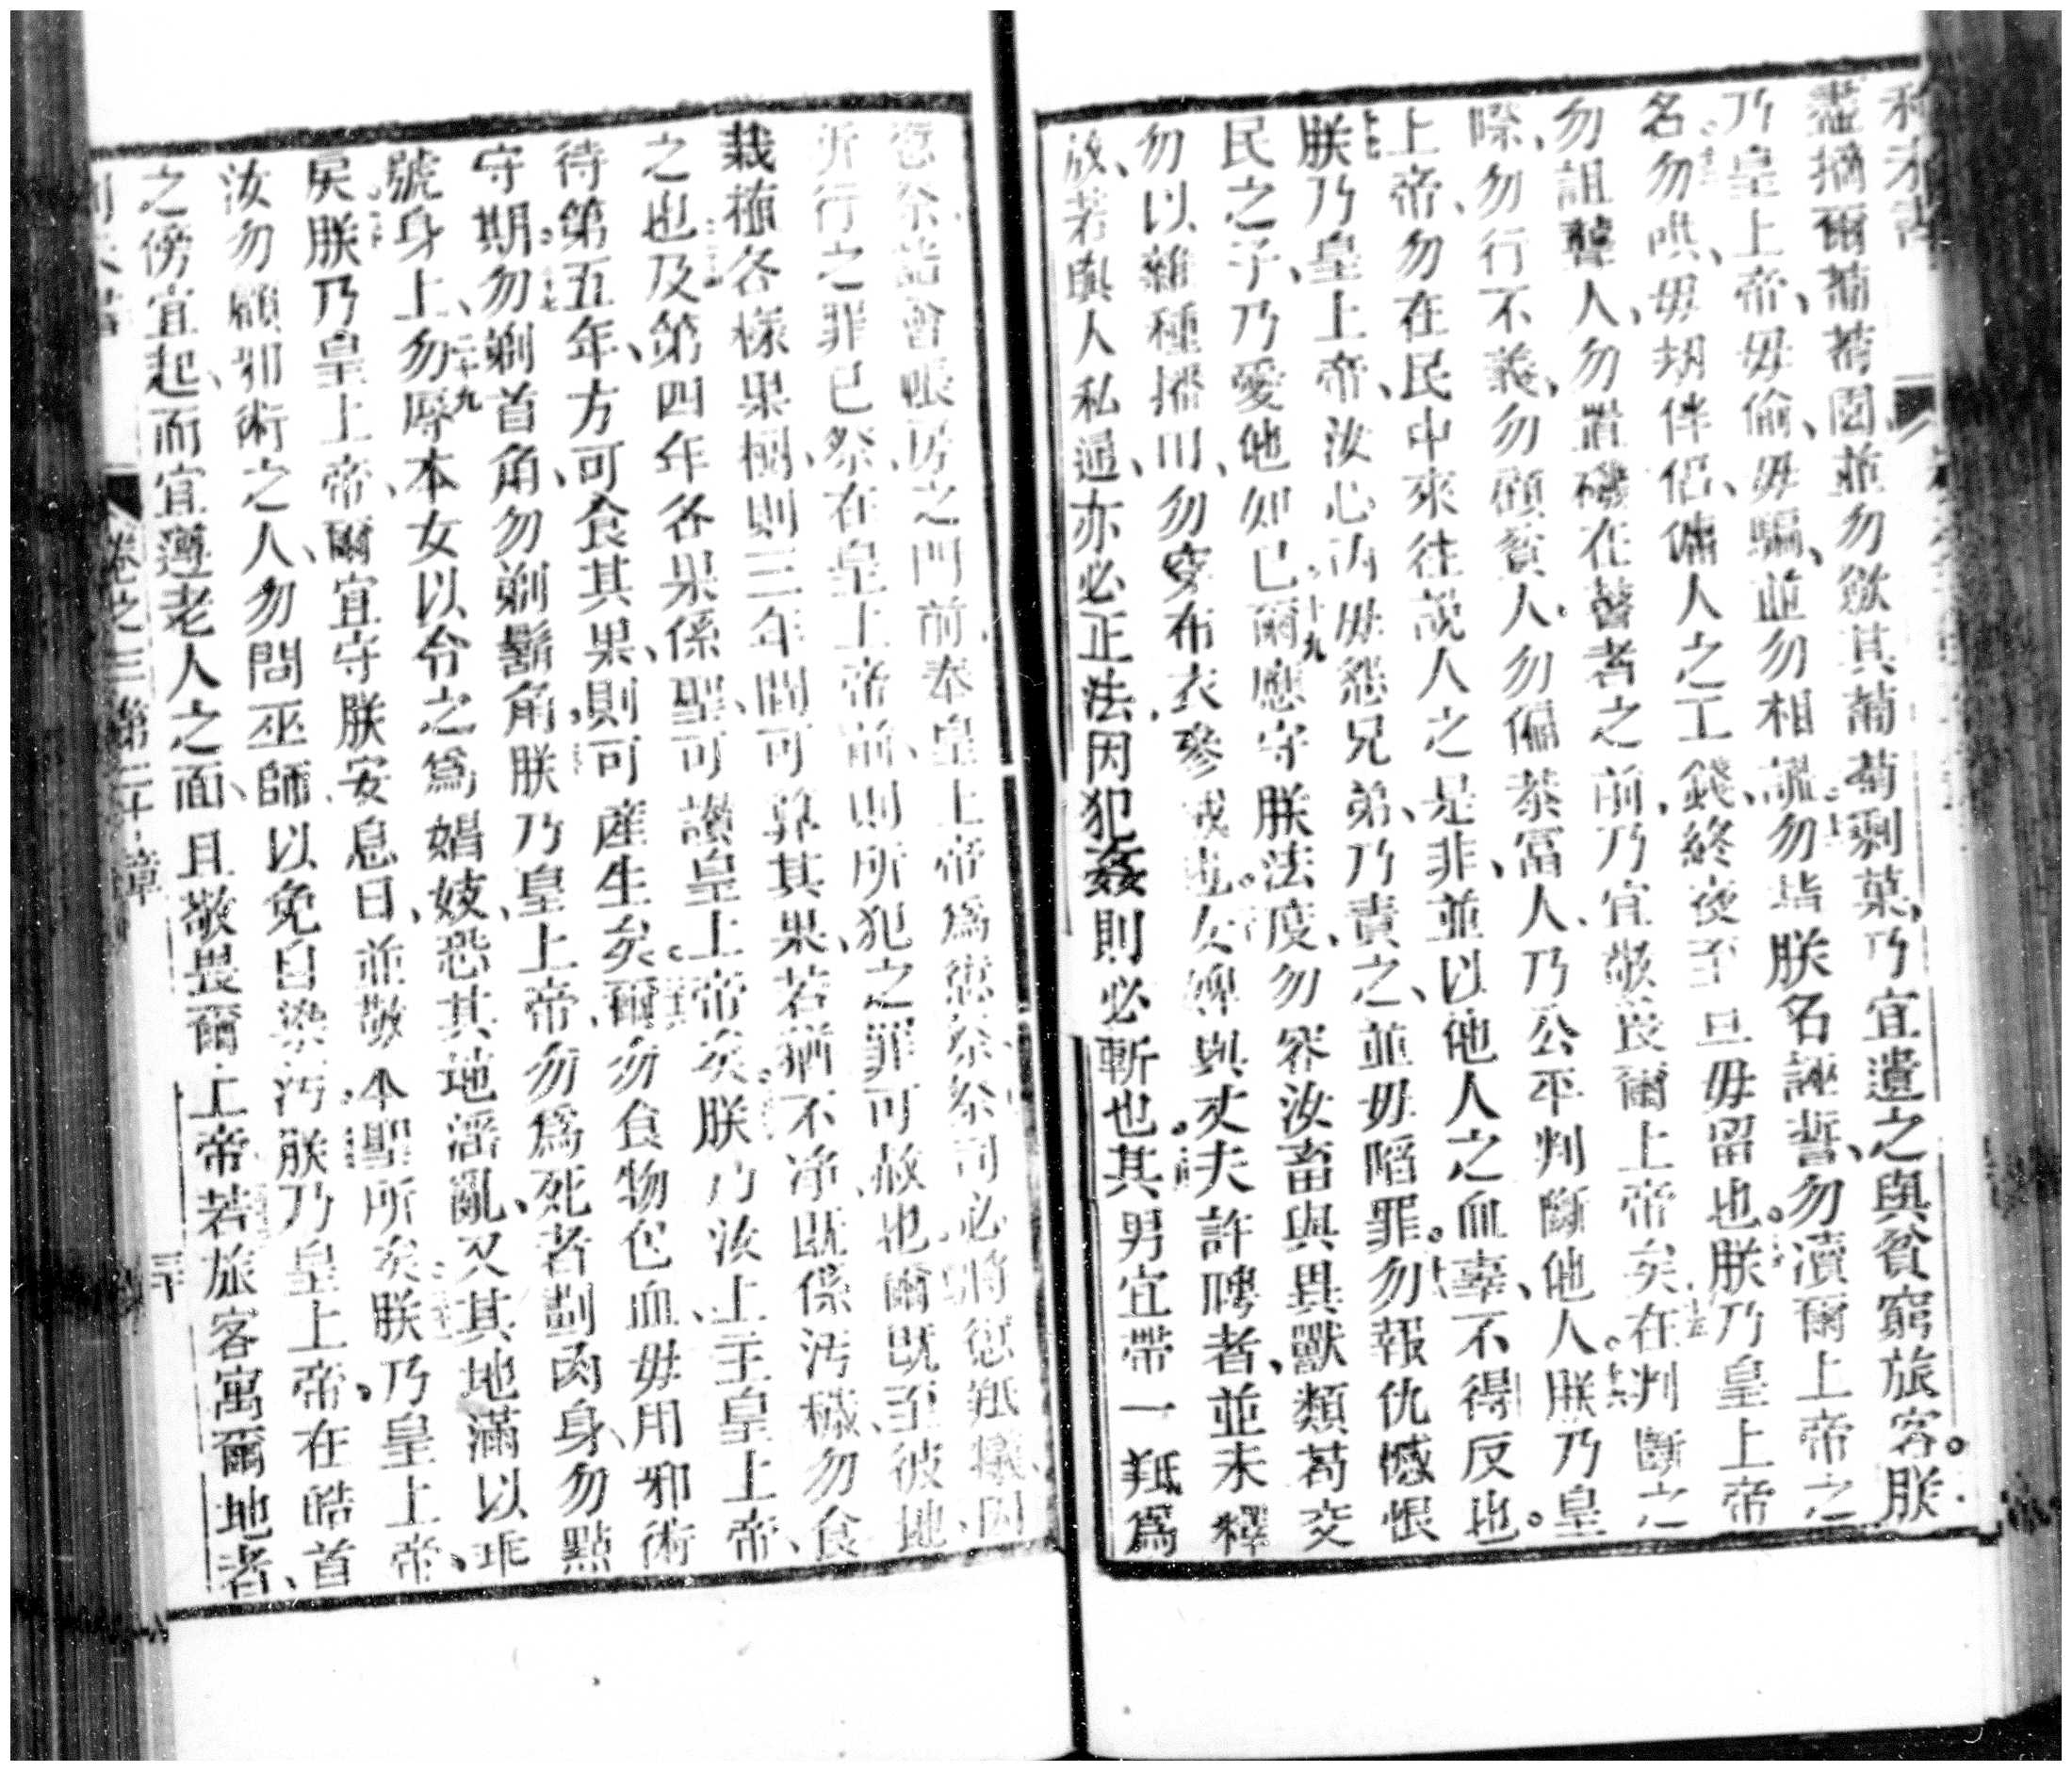 盡摘爾葡萄園並勿斂其葡萄剩菓、乃宜遺之與貧窮旅客。朕
乃皇上帝、毋偷、毋騙、並勿相謊勿指朕名誣誓、勿瀆爾上帝之
名勿哄、毋刼伴侶、傭人之工錢、終夜至旦毋留也。朕乃皇上帝
勿詛聾人、勿置磯在瞽者之前、乃宜敬畏爾上帝矣在判斷之
際、勿行不義、勿顧貧人、勿偏恭富人、乃公平判斷他人。朕乃皇
上帝、勿在民中來往說人之是非、並以他人之血辜、不得反也。
朕乃皇上帝、汝心內毋怨兄弟、乃責之、並毋陷罪。勿報仇憾恨
民之子、乃愛他如己爾應守朕法度、勿容汝畜與異獸類苟交
勿以雜種播田、勿穿布衣參絨也。女婢與丈夫許聘者、並未釋
放、若與人私通、亦必正法因犯姦則必斬也。其男宜帶一羝爲
愆祭詣會帳房之門前奉皇上帝爲愆祭祭司必將愆羝攘因
所行之罪已祭、在皇上帝前、則所犯之罪可赦也、爾既至彼地、
栽植各樣果樹、則三年間、可算其果、若猶不净、既係汚穢、勿食
之也及第四年各果係聖可讚皇上帝矣。朕乃汝上主皇上帝、
待第五年、方可食其果、則可產生矣爾勿食物包血毋用邪術
守期。勿剃首角、勿剃鬍角、朕乃皇上帝、勿爲死者劃肉身、勿點
號身上、勿辱本女以令之爲娼妓、恐其地淫亂、又其地滿以乖
戾朕乃皇上帝、爾宜守朕安息日、並敬本聖所矣朕乃皇上帝、
汝勿顧邪術之人、勿問巫師、以免自染汚、朕乃皇上帝。在皓首
之傍宜起、而宜遵老人之面、且敬畏爾上帝若旅客寓爾地者、
卷之三 第二十章